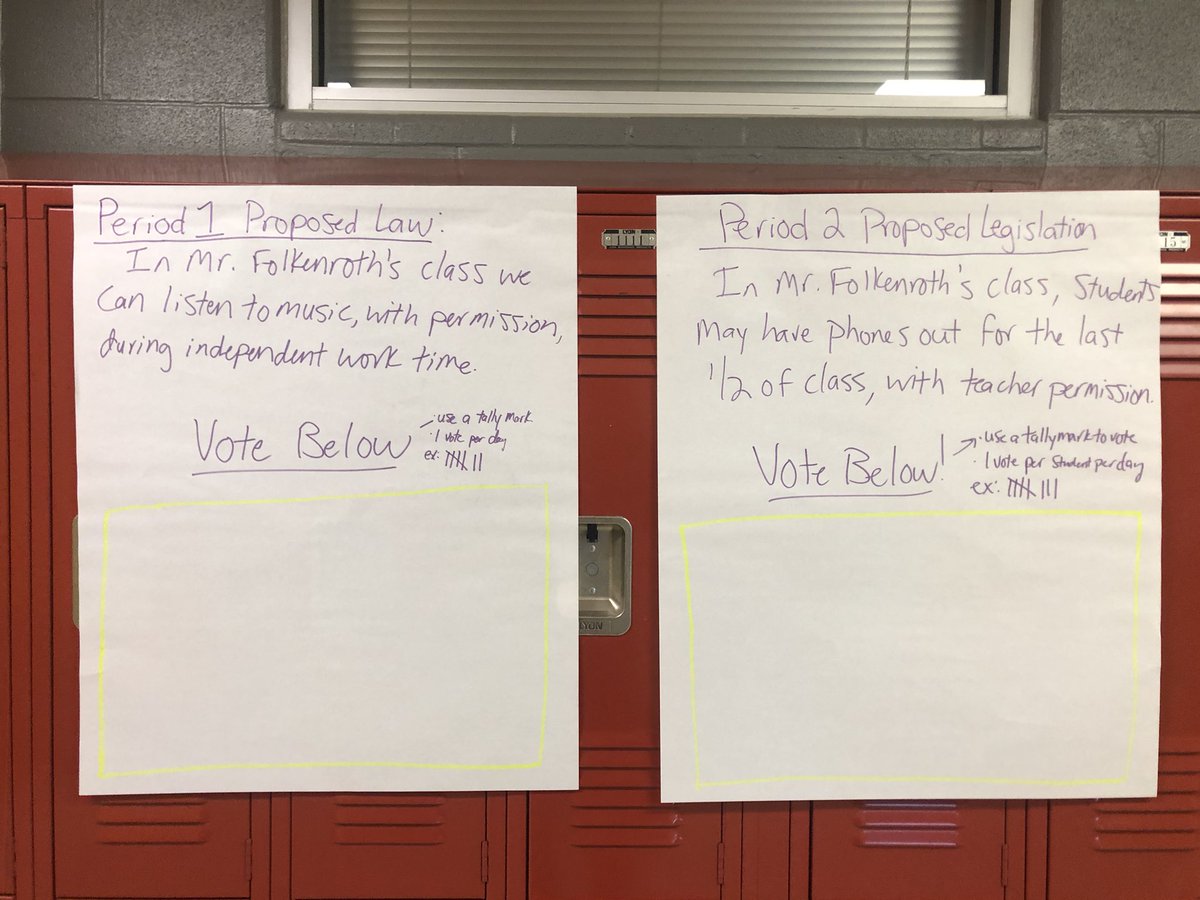 Period 1 Proposed Law:
In Mr. Folkenroth's class we
can listen to music, with permission,
during independent work time.
Vote Below
· use a tally mark
· 1 vote per day
ex: 卌 ||
Period 2 Proposed Legislation
In Mr. Folkenroth's class, Students
may have phones out for the last
1/2 of class, with teacher permission.
Vote Below!
· use a tally mark to vote
· 1 vote per Student per day
ex: 卌 |||
15
YON